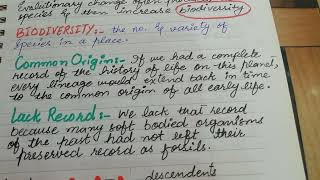 Evolutionary change often
species & then increase biodiversity
BIODIVERSITY:- the no. & variety of
species in a place.
Common Origins:- If we had a complete
record of the history of life on this planet,
every lineage would extend back in time
to the common origin of all early life.
Lack Record:- We lack that record
because many soft bodied organisms
of the past had not left their
preserved record as fossils.
descendents